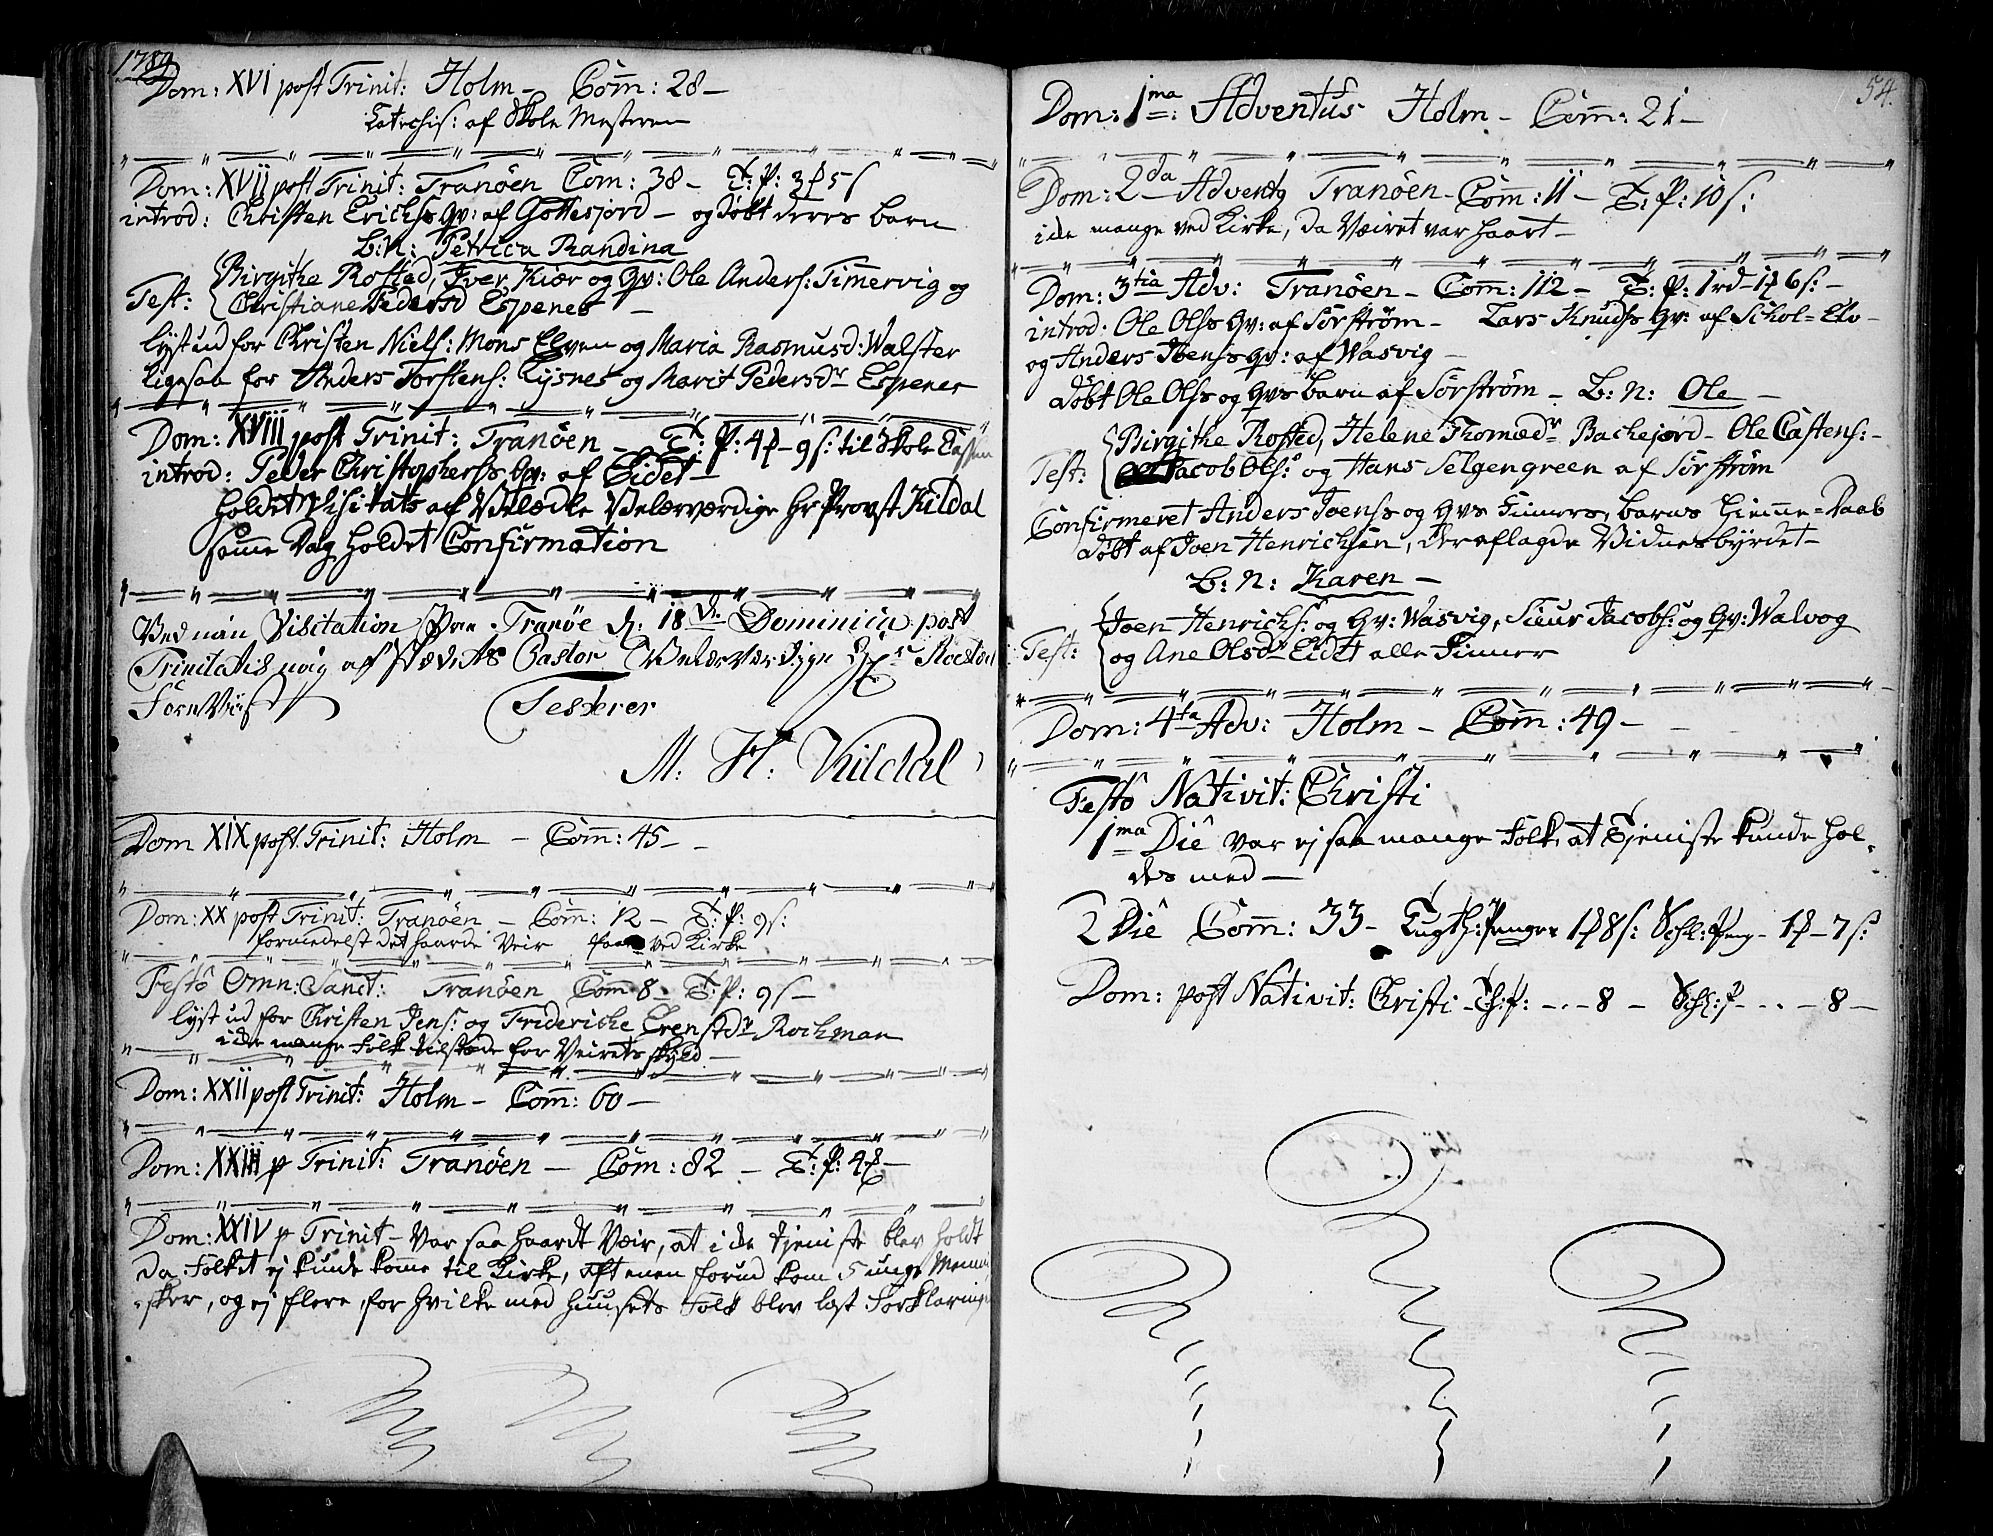 1789
Dom: XVI post Trinit: Holm — Com̄: 28 —
Catechis: af Skole Mesteren
Dom: XVII post Trinit: Tranöen Com: 38 — T: P: 3 5 s
introd: Christen Erichss qv: af Gottesjord — og döbt deres barn
B: N: Petrica Randina
Test: Birgithe Rosted, Iver Kiær og qv: Ole Anders: Timervig og
Christiane Pedersd Espenes —
lyst ud for Christen Niels: Mons Elven og Maria Rasmusd: Walster
ligesaa for Anders Torstens: Lysnes og Marit Pedersdr Espenes
Dom: XVIII post Trinit: Tranöen — T: P: 4 — 9 s: til Skole Cassen
introd: Peder Christophers qv: af Eidet —
holdet Visitats af Velædle Velærværdige Hr Provst Kildal
samme Dag holdet Confirmation
Ved min Visitation Tranöe d: 18 de Dominica post
Trinitatis af Stædets Pastor Velærværdige Hr Rosted
Testerer
M. H. Kildal
Dom XIX post. Trinit: Holm — Com̄: 45 —
Dom: XX post Trinit: Tranöen — Com̄: 12 — T: P: 9 s:
formedelst det haarde Veir faae ved Kirke
Festo Omn: Sanct: Tranöen Com̄ 8 — T: P: 9 s —
lyst ud for Christen Jens: og Fridericke Erenstdr Rochman
icke mange Folk tilstæde for Veirets skyld —
Dom: XXII post Trinit: Holm — Com̄: 60 —
Dom: XXIII p Trinit: Tranöen — Com̄: 82 — T: P: 4 —
Dom: XXIV p Trinit — Var saa haardt Veir, at icke tjeniste blev holdt
da Folket ej kunde komme til Kirke, aftenen forud kom 5 unge Menni-
sker, og ej flere, for hvilke med huusets Folk blev læst Forklaringen
54.
Dom: 1ma Adventus Holm — Com̄: 21 —
Dom: 2da Advent Tranöen — Com̄: 11 — T: P: 10 s:
icke mange ved Kirke, da Væiret var haart —
Dom: 3tia Adv: Tranöen — Com̄: 112 — T: P: 1 rd — 1 6 s: —
introd. Ole Olss qv: af Sörström — Lars Knuds qv: af Skol-Elv —
og Anders Joenss qv: af Wasvig —
döbt Ole Olss og qvs barn af Sörström — B: N: Ole —
Test: Birgithe Rosted, Helene Thomædr Bachejord — Ole Castens: —
Jacob Ols: og Hans Selgengreen af Sörström
Confirmeret Anders Joenss og qvs Finners, barns hiemme-Daab
döbt af Joen Henrichsen, der aflagde Vidnesbyrdet —
B: N: Karen —
Test: Joen Henrichs: og qv: Wasvig, Sieur Jacobs: og qv: Walvog
og Ane Olsdr Eidet alle Finner
Dom: 4ta Adv: Holm — Com̄: 49 —
Festo Nativit: Christi
1ma Die var ej saa mange Folk, at Tjeniste kunde hol-
des med —
2 Die Com̄: 33 — Tugth: Penger 1 8 s: Schl: Peng — 1 — 7 s:
Dom: post Nativit: Christi — Th: P: - - - 8 — Schl: P - - - 8 —